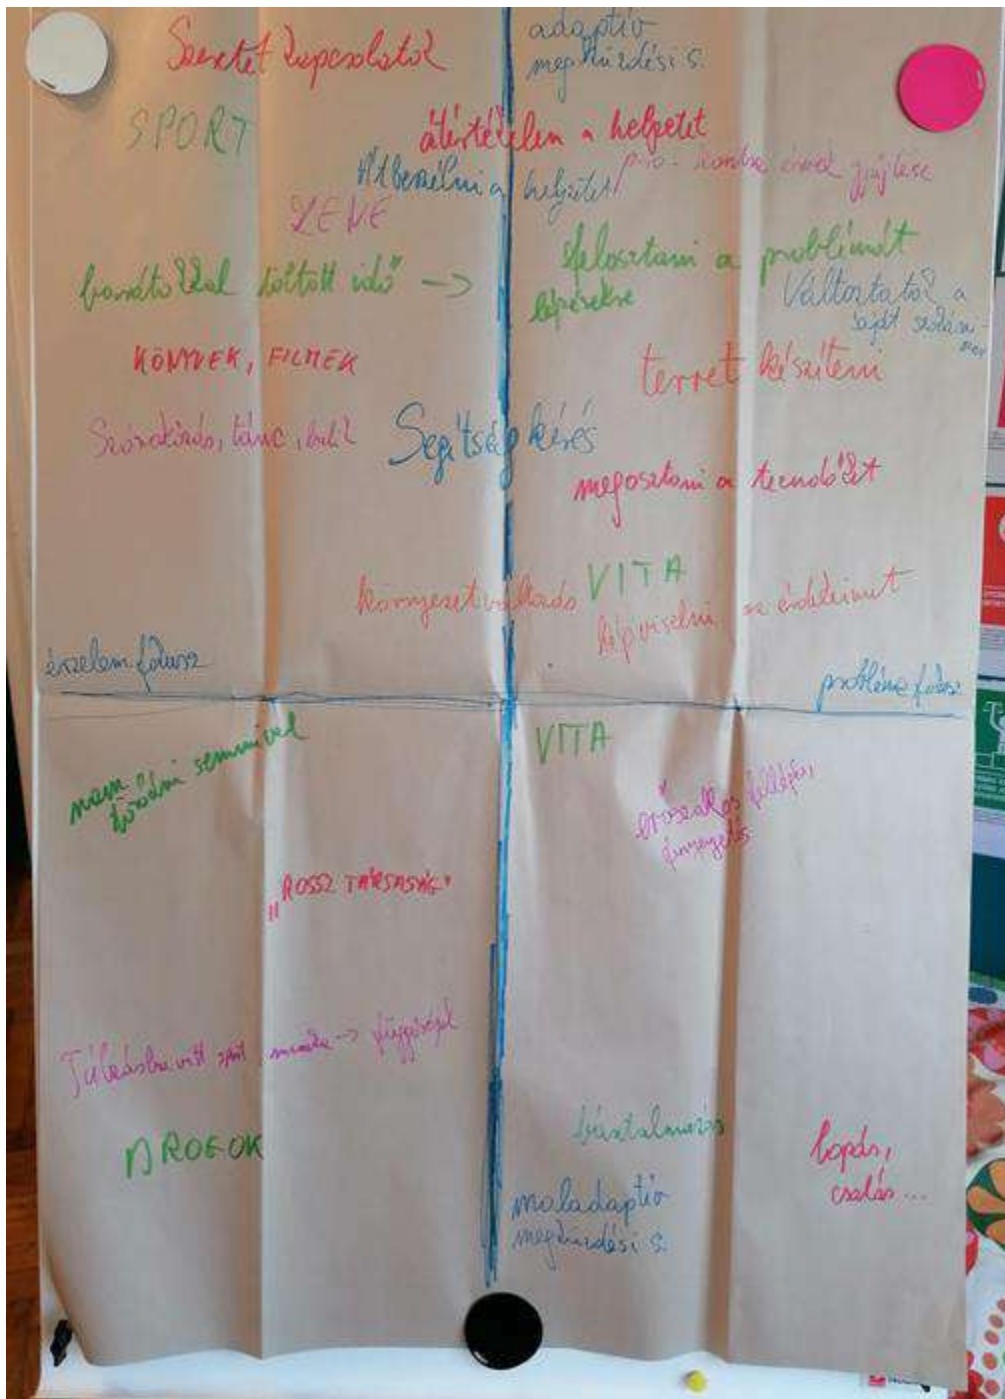 adaptív
megküzdési s.
Szeretet kapcsolatok
SPORT
átértékelem a helyzetet
Átbeszélni a helyzetet / pro-kontra érvek gyűjtése
ZENE
barátokkal töltött idő →
felosztani a problémát
lépésekre
Változtatok a
saját
KÖNYVEK, FILMEK
tervet készíteni
Szórakozás, tánc, buli
Segítség kérés
megosztani a teendőket
VITA
környezetváltozás
képviselni az érdekeimet
érzelem fókusz
probléma fókusz
nem
törődni semmivel
VITA
erőszakos fellépés,
fenyegetés
„ROSSZ TÁRSASÁG"
Túlzásba vitt sport, munka → függőségek
DROGOK
bántalmazás
lopás,
csalás...
maladaptív
megküzdési s.